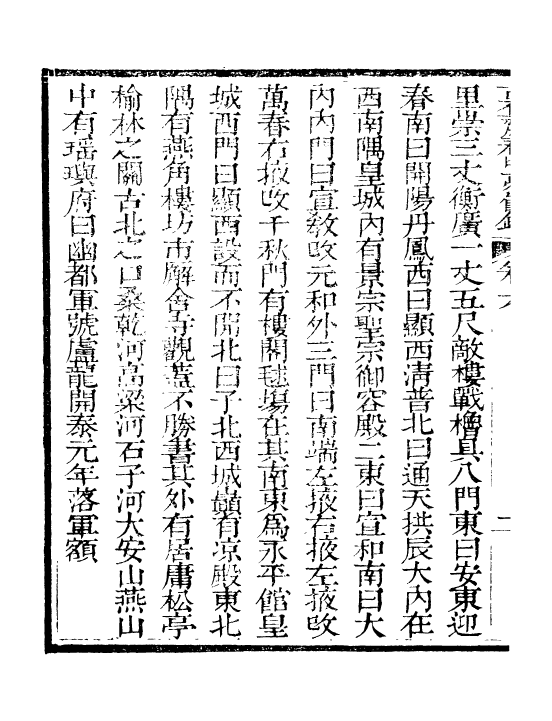 卷六
二
里崇三丈衡廣一丈五尺敵樓戰櫓具八門東曰安東迎
春南曰開陽丹鳳西曰顯西淸普北曰通天拱辰大內在
西南隅皇城內有景宗聖宗御容殿二東曰宣和南曰大
內內門曰宣敎改元和外三門曰南端左掖右掖左掖改
萬春右掖改千秋門有樓閣毬塲在其南東爲永平館皇
城西門曰顯西設而不開北曰子北西城巓有凉殿東北
隅有燕角樓坊市廨舍寺觀葢不勝書其外有居庸松亭
榆林之關古北之口桑乾河高梁河石子河大安山燕山
中有瑶璵府曰幽都軍號盧龍開泰元年落軍額